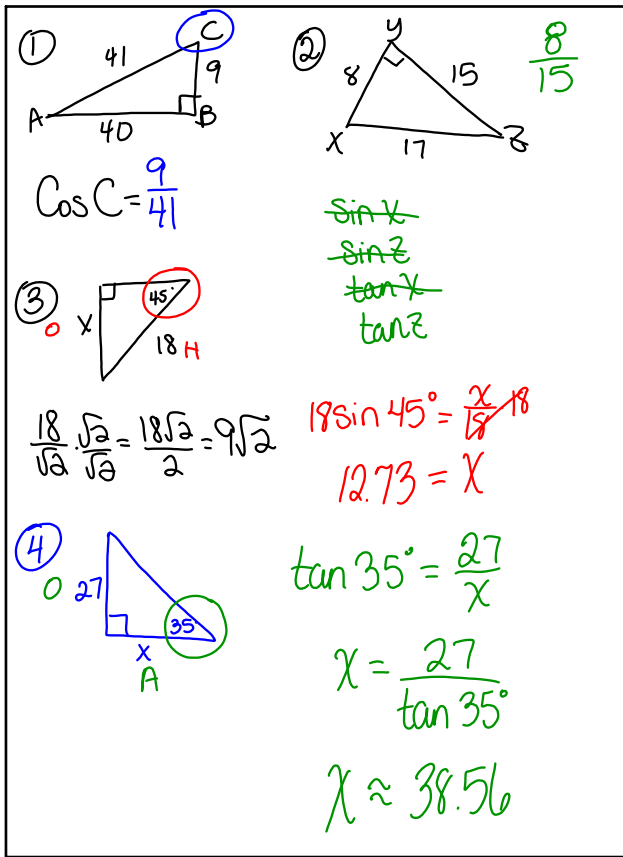 ① C 41 9 A 40 B
Cos C = 9/41
② Y 8 15 X 17 Z
8/15
sin X
sin Z
tan X
tan Z
③ O X 45° 18 H
18/√2 · √2/√2 = 18√2/2 = 9√2
18 sin 45° = x/18 18
12.73 = x
④ O 27 35 x A
tan 35° = 27/x
x = 27/tan 35°
x ≈ 38.56